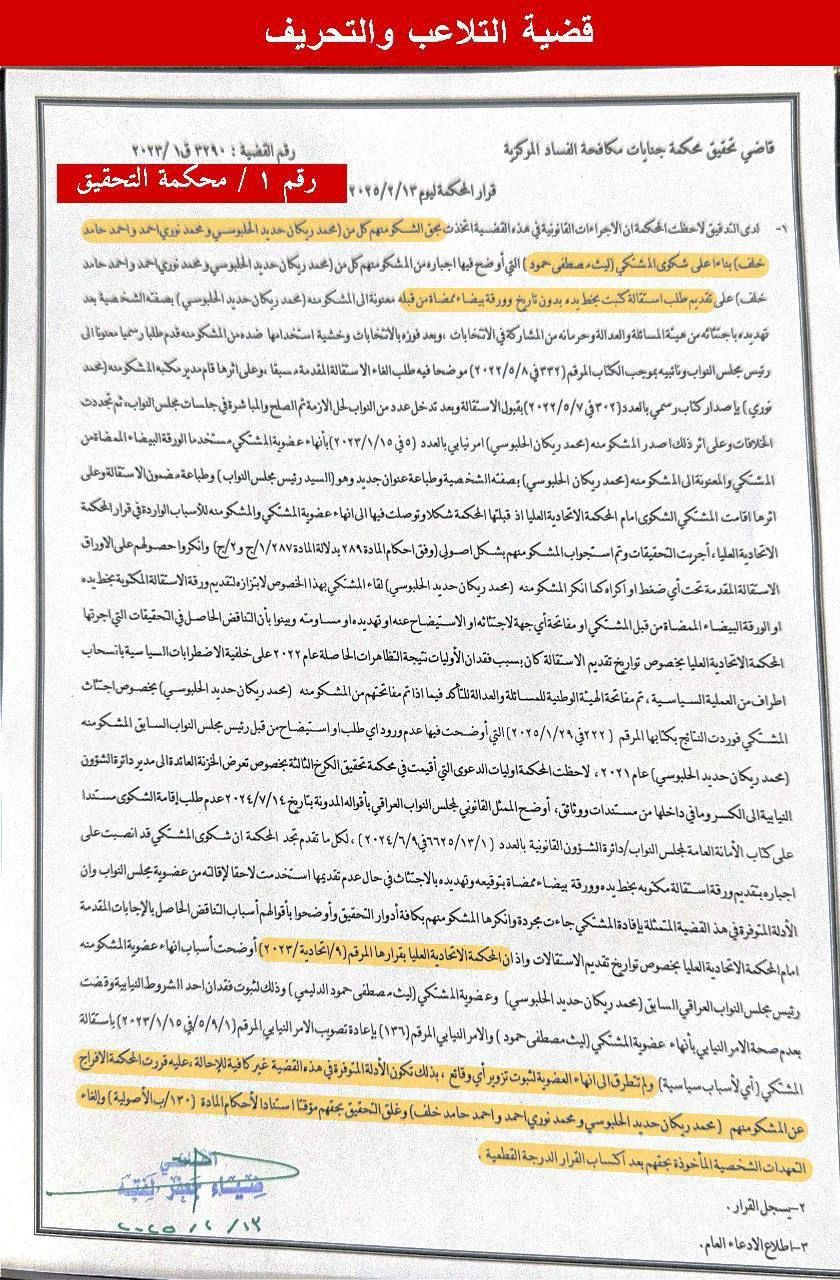 قضية التلاعب والتحريف
قاضي تحقيق محكمة جنايات مكافحة الفساد المركزية
رقم القضية : ٣٢٩٠ ق١ /٢٠٢٣
رقم ١ / محكمة التحقيق
قرار المحكمة ليوم ٢٠٢٥/٢/١٣
١- لدى التدقيق لاحظت المحكمة ان الاجراءات القانونية في هذه القضية اتخذت بحق المشكو منهم كل من (محمد ريكان حديد الحلبوسي ومحمد نوري احمد واحمد حامد
خلف) بناءا على شكوى المشتكي (ليث مصطفى حمود) التي أوضح فيها اجباره من المشكو منهم كل من (محمد ريكان حديد الحلبوسي ومحمد نوري احمد واحمد حامد
خلف) على تقديم طلب استقالة كتبت بخط يده بدون تاريخ وورقة بيضاء ممضاة من قبله معنونة الى المشكو منه (محمد ريكان حديد الحلبوسي) بصفته الشخصية بعد
تهديده باجتثاثه من هيئة المسائلة والعدالة وحرمانه من المشاركة في الانتخابات ، وبعد فوزه بالانتخابات وخشية استخدامها ضده من المشكو منه قدم طلبا رسميا معنونا الى
رئيس مجلس النواب ونائبيه بموجب الكتاب المرقم (٣٣٢ في ٢٠٢٢/٥/٨) موضحا فيه طلب الغاء الاستقالة المقدمة مسبقا ، وعلى اثرها قام مدير مكتبه المشكو منه (محمد
نوري) بإصدار كتاب رسمي بالعدد (٣٠٢ في ٢٠٢٢/٥/٧) بقبول الاستقالة وبعد تدخل عدد من النواب لحل الازمة تم الصلح والمباشرة في جلسات مجلس النواب، ثم تجددت
الخلافات وعلى اثر ذلك اصدر المشكو منه (محمد ريكان الحلبوسي) امر نيابي بالعدد (٥ في ٢٠٢٣/١/١٥) بأنهاء عضوية المشتكي مستخدما الورقة البيضاء الممضاة من
المشتكي والمعنونة الى المشكو منه (محمد ريكان الحلبوسي) بصفته الشخصية وطباعة عنوان جديد وهو (السيد رئيس مجلس النواب) وطباعة مضمون الاستقالة وعلى
اثرها اقامت المشتكي الشكوى امام المحكمة الاتحادية العليا اذ قبلتها المحكمة شكلا وتوصلت فيها الى انهاء عضوية المشتكي والمشكو منه للأسباب الواردة في قرار المحكمة
الاتحادية العليا ، أجريت التحقيقات وتم استجواب المشكو منهم بشكل اصولي (وفق احكام المادة ٢٨٩ بدلالة المادة ١/٢٨٧/ج و٢/ج) وانكروا حصولهم على الاوراق
الاستقالة المقدمة تحت أي ضغط او اكراه كما انكر المشكو منه (محمد ريكان حديد الحلبوسي) لقاء المشتكي بهذا الخصوص لابتزازه لتقديم ورقة الاستقالة المكتوبة بخط يده
او الورقة البيضاء الممضاة من قبل المشتكي او مفاتحة أي جهة لاجتثاثه او الاستيضاح عنه او تهديده او مساومته وبينوا بأن التناقض الحاصل في التحقيقات التي اجرتها
المحكمة الاتحادية العليا بخصوص تواريخ تقديم الاستقالة كان بسبب فقدان الأوليات نتيجة التظاهرات الحاصلة عام ٢٠٢٢ على خلفية الاضطرابات السياسية بانسحاب
اطراف من العملية السياسية ، تم مفاتحة الهيئة الوطنية للمسائلة والعدالة للتأكد فيما اذا تم مفاتحتهم من المشكو منه (محمد ريكان حديد الحلبوسي) بخصوص اجتثاث
المشتكي فوردت النتائج بكتابها المرقم (٢٢٢ في ٢٠٢٥/١/٢٩) التي أوضحت فيها عدم ورود اي طلب او استيضاح من قبل رئيس مجلس النواب السابق المشكو منه
(محمد ريكان حديد الحلبوسي) عام ٢٠٢١ ، لاحظت المحكمة اوليات الدعوى التي أقيمت في محكمة تحقيق الكرخ الثالثة بخصوص تعرض الخزنة العائدة الى مدير دائرة الشؤون
النيابية الى الكسر وما في داخلها من مستندات ووثائق ، أوضح الممثل القانوني لمجلس النواب العراقي بأقواله المدونة بتاريخ ٢٠٢٤/٧/١٤ عدم طلب إقامة الشكوى مستندا
على كتاب الأمانة العامة لمجلس النواب/دائرة الشؤون القانونية بالعدد (٦٦٢٥/١٣/١ في ٢٠٢٤/٦/٩) ، لكل ما تقدم تجد المحكمة ان شكوى المشتكي قد انصبت على
اجباره بتقديم ورقة استقالة مكتوبه بخط يده وورقة بيضاء ممضاة بتوقيعه وتهديده بالاجتثاث في حال عدم تقديمها استخدمت لاحقا لإقالته من عضوية مجلس النواب وان
الأدلة المتوفرة في هذه القضية المتمثلة بإفادة المشتكي جاءت مجردة وانكرها المشكو منهم بكافة أدوار التحقيق وأوضحوا بأقوالهم أسباب التناقض الحاصل بالإجابات المقدمة
امام المحكمة الاتحادية العليا بخصوص تواريخ تقديم الاستقالات واذ ان المحكمة الاتحادية العليا بقرارها المرقم (٩/اتحادية/٢٠٢٣) أوضحت أسباب انهاء عضوية المشكو منه
رئيس مجلس النواب العراقي السابق (محمد ريكان حديد الحلبوسي) وعضوية المشتكي (ليث مصطفى حمود الدليمي) وذلك لثبوت فقدان احد الشروط النيابية وقضت
بعدم صحة الامر النيابي بأنهاء عضوية المشتكي (ليث مصطفى حمود) والامر النيابي المرقم (١٣٦) بإعادة تصويب الامر النيابي المرقم (٥/٩/١ في ٢٠٢٣/١/١٥) باستقالة
المشتكي (أي لأسباب سياسية) ولم تتطرق الى انهاء العضوية لثبوت تزوير أي وقائع ، بذلك تكون الأدلة المتوفرة في هذه القضية غير كافية للإحالة ، عليه قررت المحكمة الافراج
عن المشكو منهم (محمد ريكان حديد الحلبوسي ومحمد نوري احمد واحمد حامد خلف) وغلق التحقيق بحقهم مؤقتا استنادا لأحكام المادة (١٣٠/ب الأصولية) وإلغاء
التعهدات الشخصية المأخوذة بحقهم بعد اكتساب القرار الدرجة القطعية .
٢- يسجل القرار .
٣- اطلاع الادعاء العام .
القاضي
ضياء جعفر لفتة
٢٠٢٥/٢/١٣